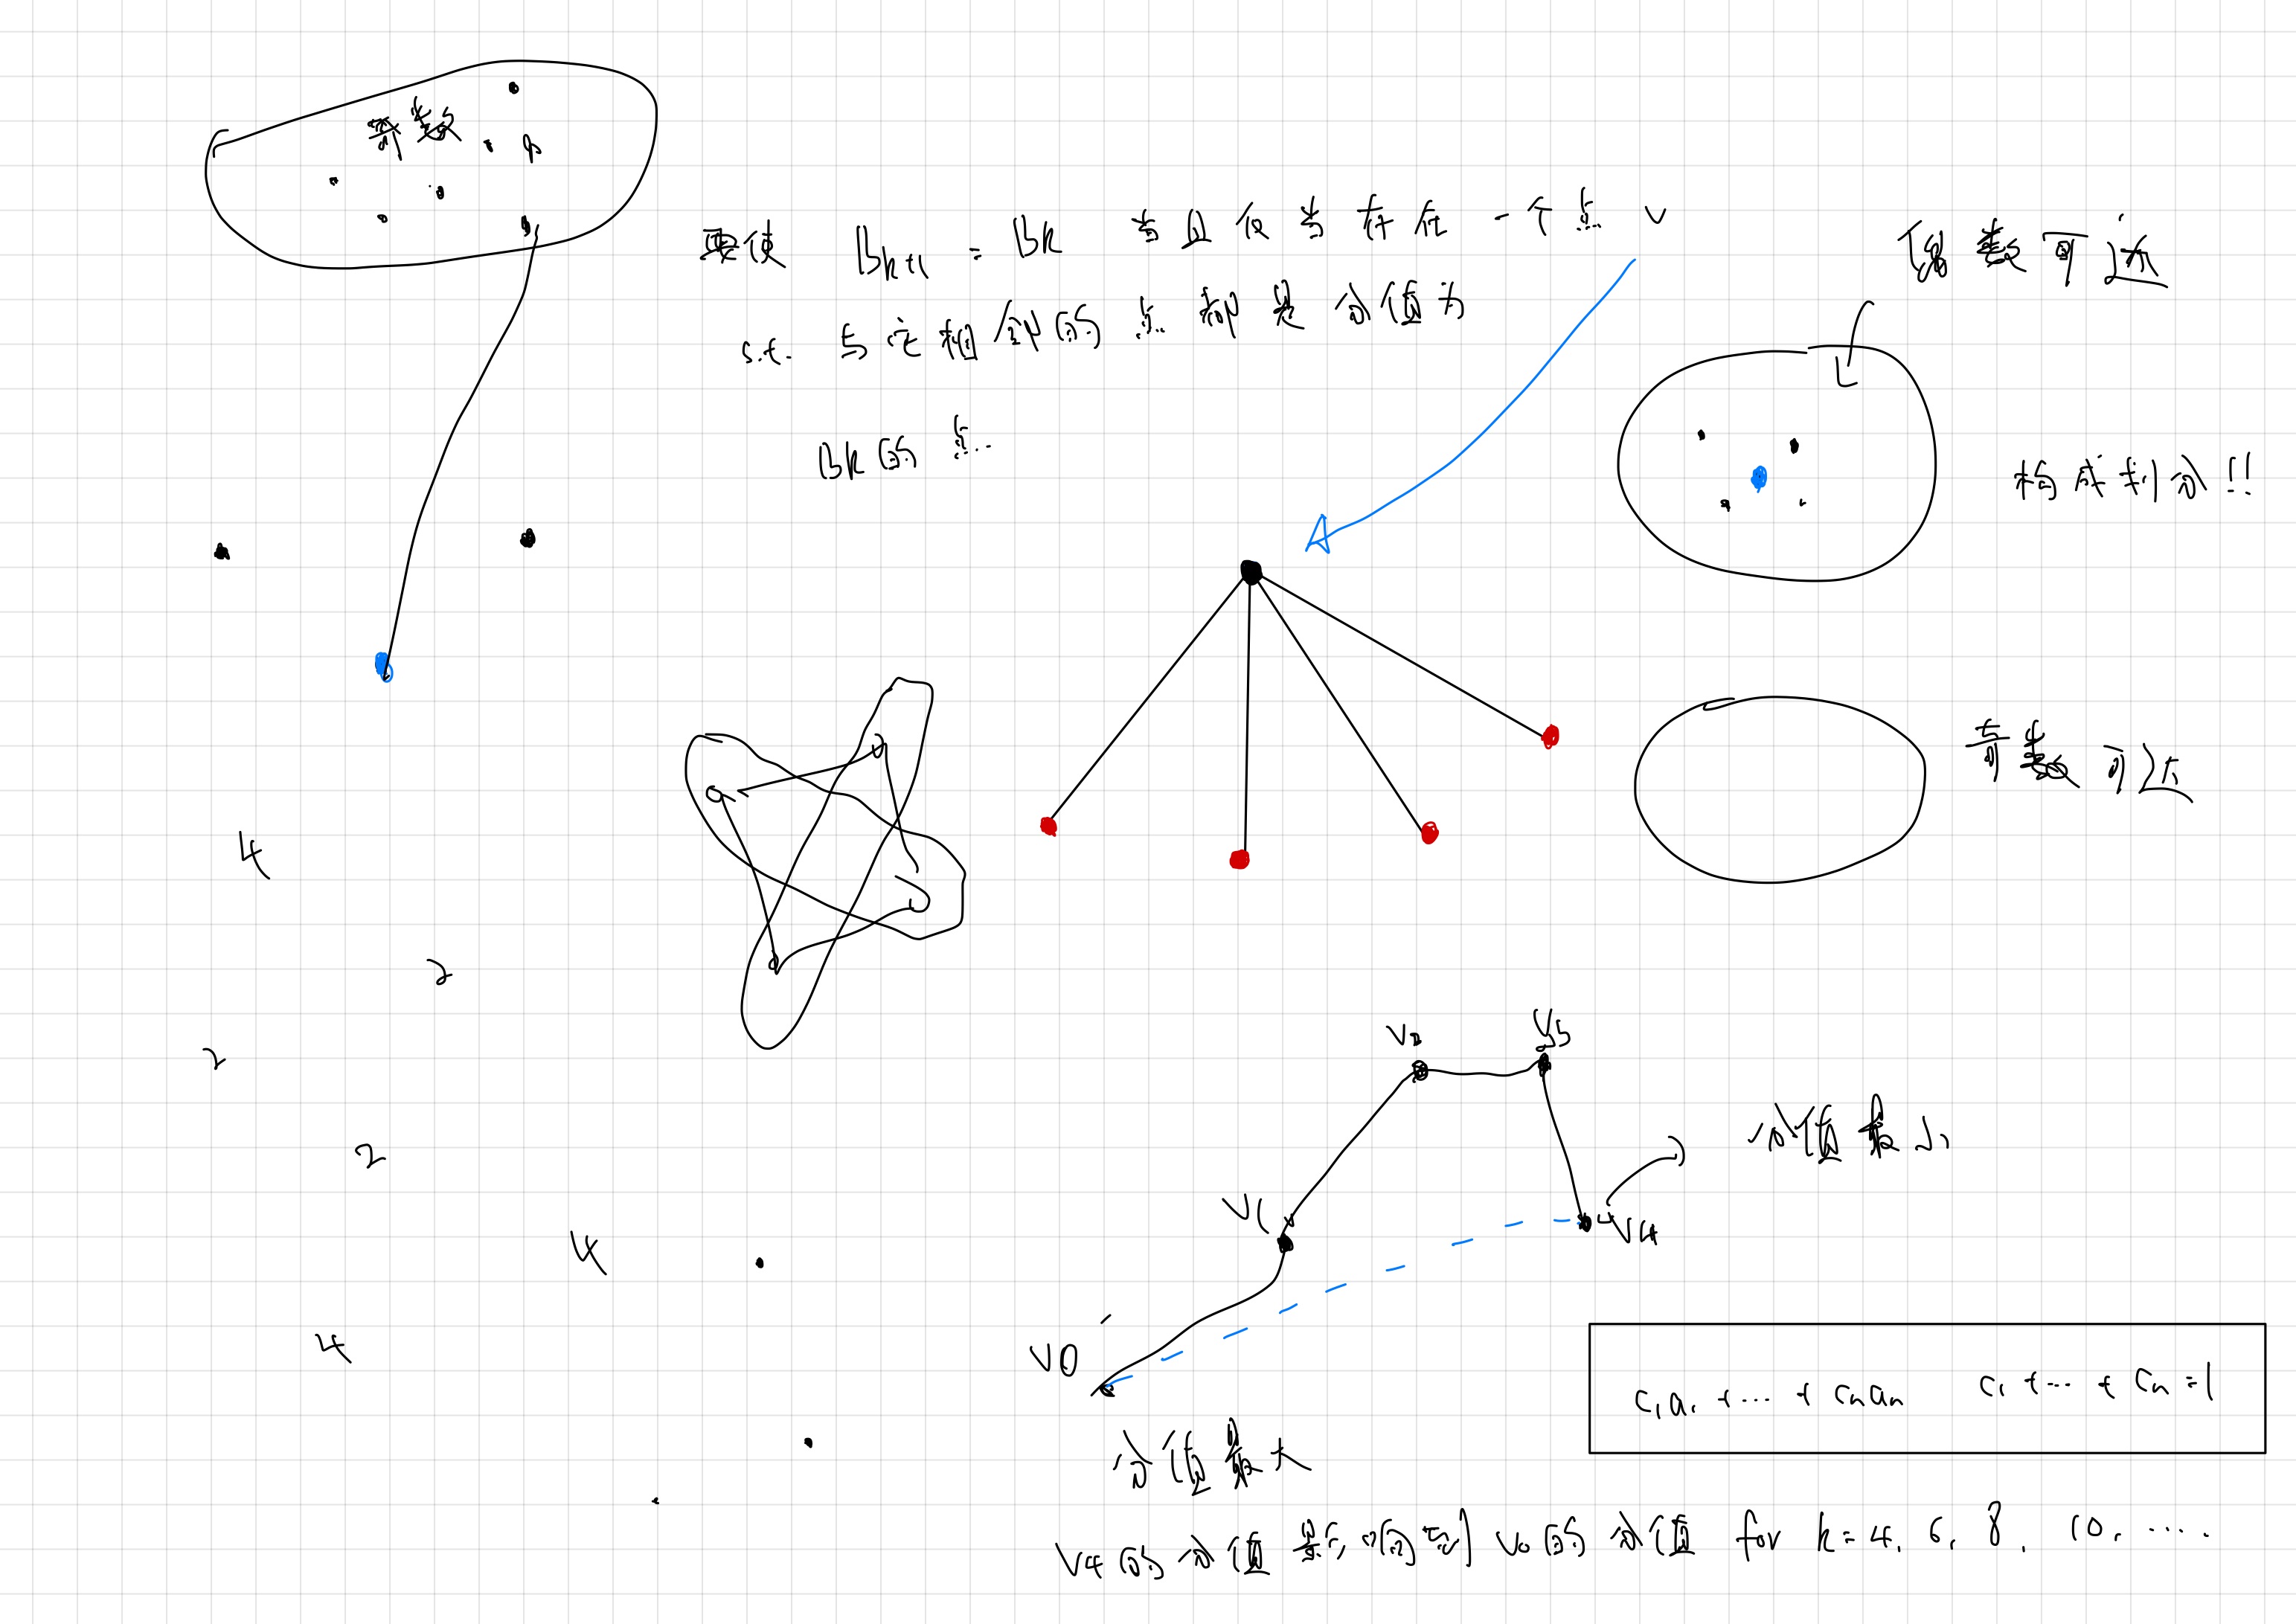 奇数
要使 Bk+1 = Bk 当且仅当存在一个点 v
s.t. 与它相邻的点都是分值为
Bk的点.
偶数可达
构成划分!!
奇数可达
4
2
2
2
4
4
V2
V3
V1
V4
V0
分值最小
分值最大
c1a1 + ... + cnan c1 + ... + cn = 1
V4的分值影响到V0的分值 for k = 4, 6, 8, 10, ....